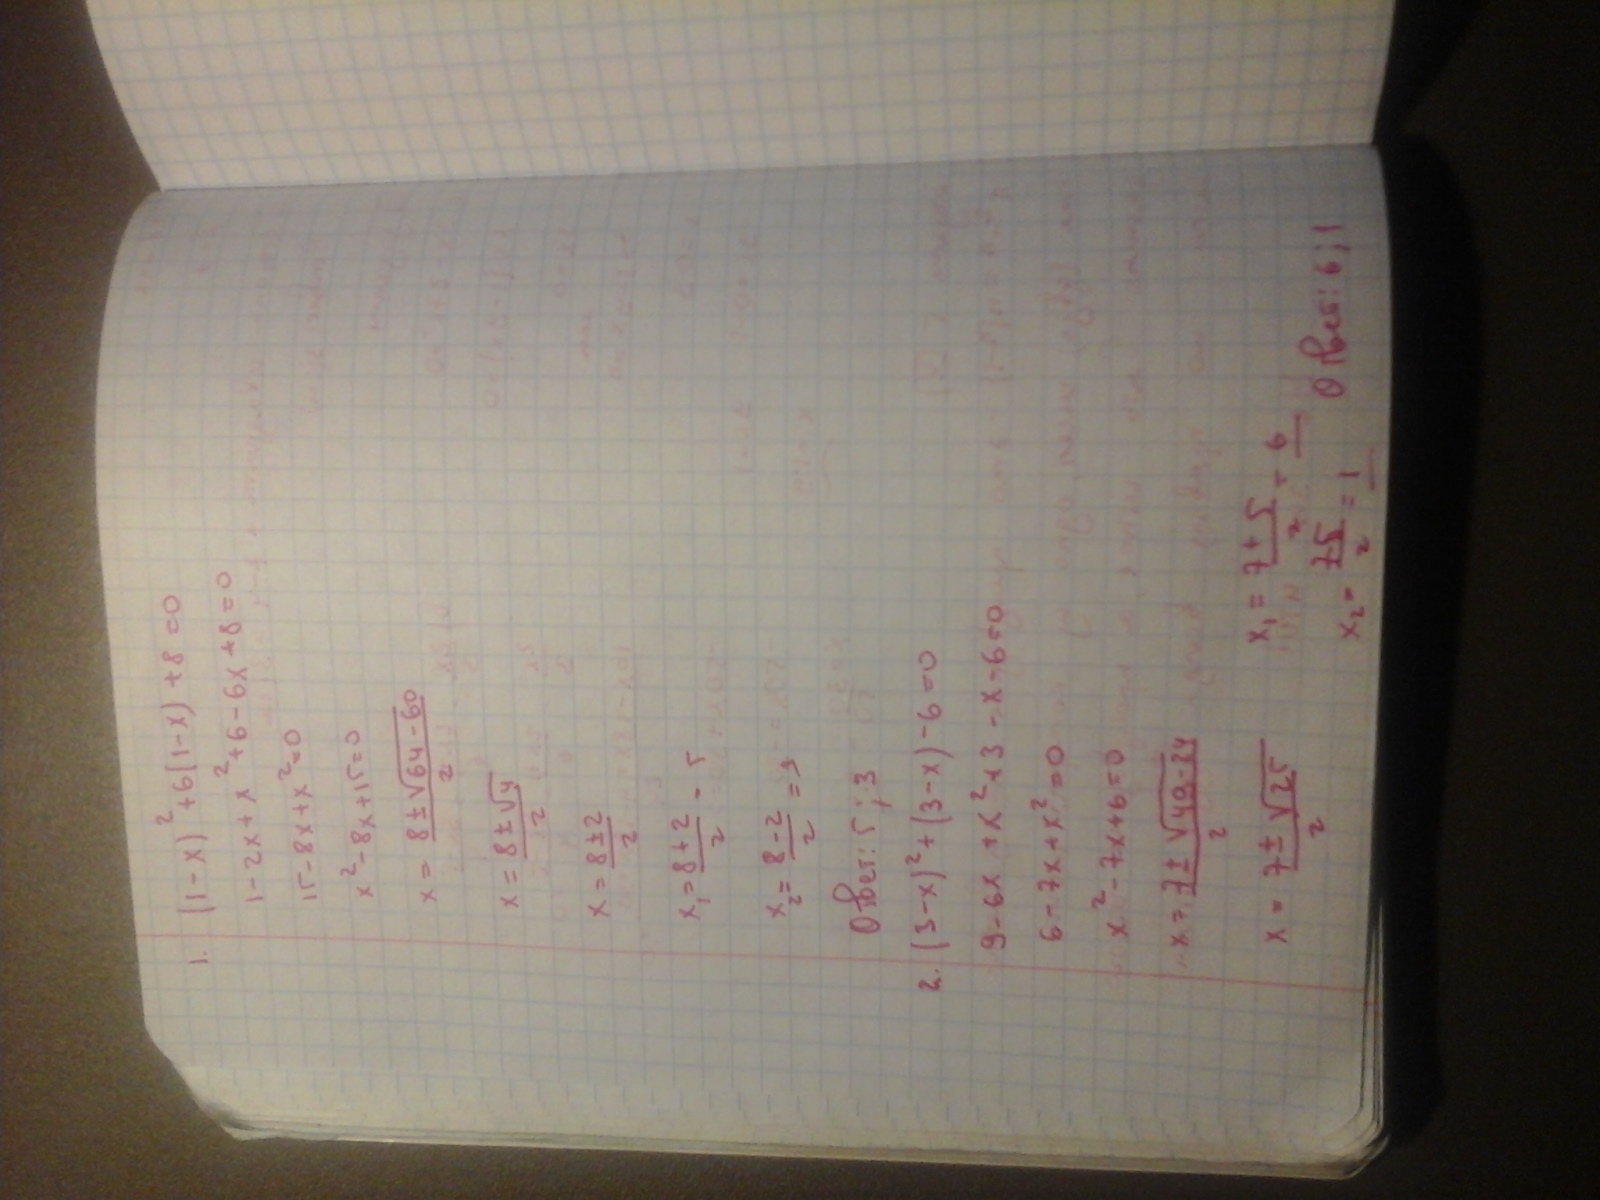 1. (1-x)²+6(1-x)+8=0
1-2x+x²+6-6x+8=0
15-8x+x²=0
x²-8x+15=0
x= (8±√(64-60))/2
x= (8±√4)/2
x= (8±2)/2
x₁= (8+2)/2 - 5
x₂= (8-2)/2 =3
Ответ: 5;3
2. (3-x)²+(3-x)-6=0
9-6x+x²+3-x-6=0
6-7x+x²=0
x²-7x+6=0
x= (7±√(49-24))/2
x= (7±√25)/2
x₁= (7+5)/2 = 6
x₂= (7-5)/2 =1
Ответ: 6;1